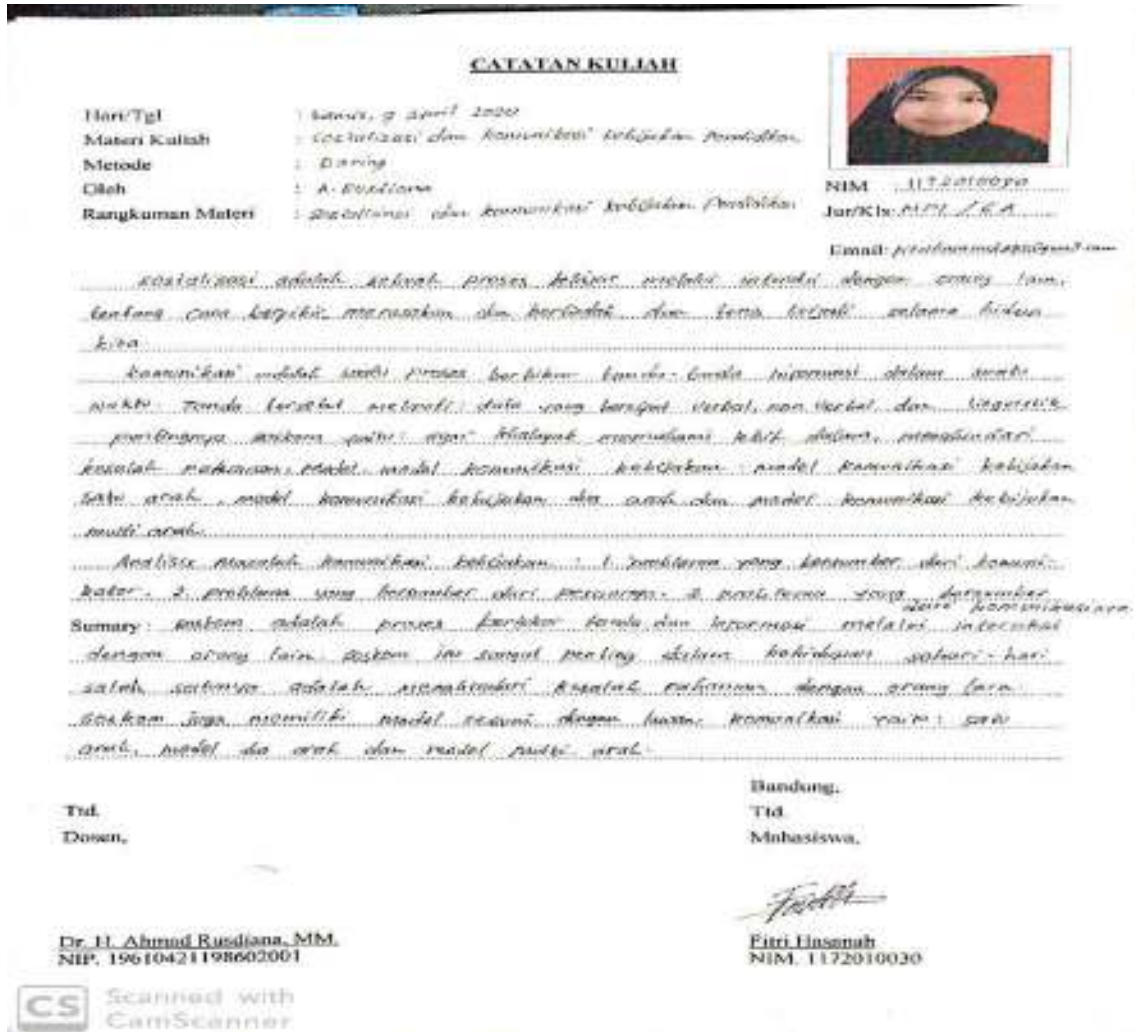 CATATAN KULIAH
Hari/Tgl : kamis, 9 april 2020
Materi Kuliah : sosialisasi dan komunikasi kebijakan Pendidikan
Metode : Daring
Oleh : A. Rusdiana
Rangkuman Materi : sosialisasi dan komunikasi kebijakan Pendidikan
NIM :
Jur/Kls: MPI / 6 A
Email:
sosialisasi adalah sebuah proses belajar melalui interaksi dengan orang lain,
tentang cara berpikir, merasakan dan bertindak dan terus terjadi selama hidup
kita
komunikasi adalah suatu proses bertukar tanda-tanda informasi dalam suatu
waktu. Tanda tersebut meliputi: data yang bersifat verbal, non verbal, dan linguistik
pentingnya soskom yaitu: agar khalayak memahami lebih dalam, menghindari
kesalah pahaman. Model-model komunikasi kebijakan: model komunikasi kebijakan
satu arah, model komunikasi kebijakan dua arah dan model komunikasi kebijakan
multi arah.
Analisis masalah komunikasi kebijakan: 1. problema yang bersumber dari komuni-
kator. 2. problema yang bersumber dari pesannya. 3. problema yang bersumber
dari
Sumary: soskom adalah proses bertukar tanda dan informasi melalui interaksi
dengan orang lain. soskom ini sangat penting dalam kehidupan sehari-hari
salah satunya adalah menghindari kesalah pahaman dengan orang lain.
soskom juga memiliki model sesuai dengan komunikasi yaitu: satu
arah, model dua arah dan model multi arah.
Bandung,
Ttd.
Ttd.
Dosen,
Mahasiswa,
Dr. H. Ahmad Rusdiana, MM.
NIP. 19610421198602001
Fitri Hasanah
NIM. 1172010030
CS Scanned with
CamScanner